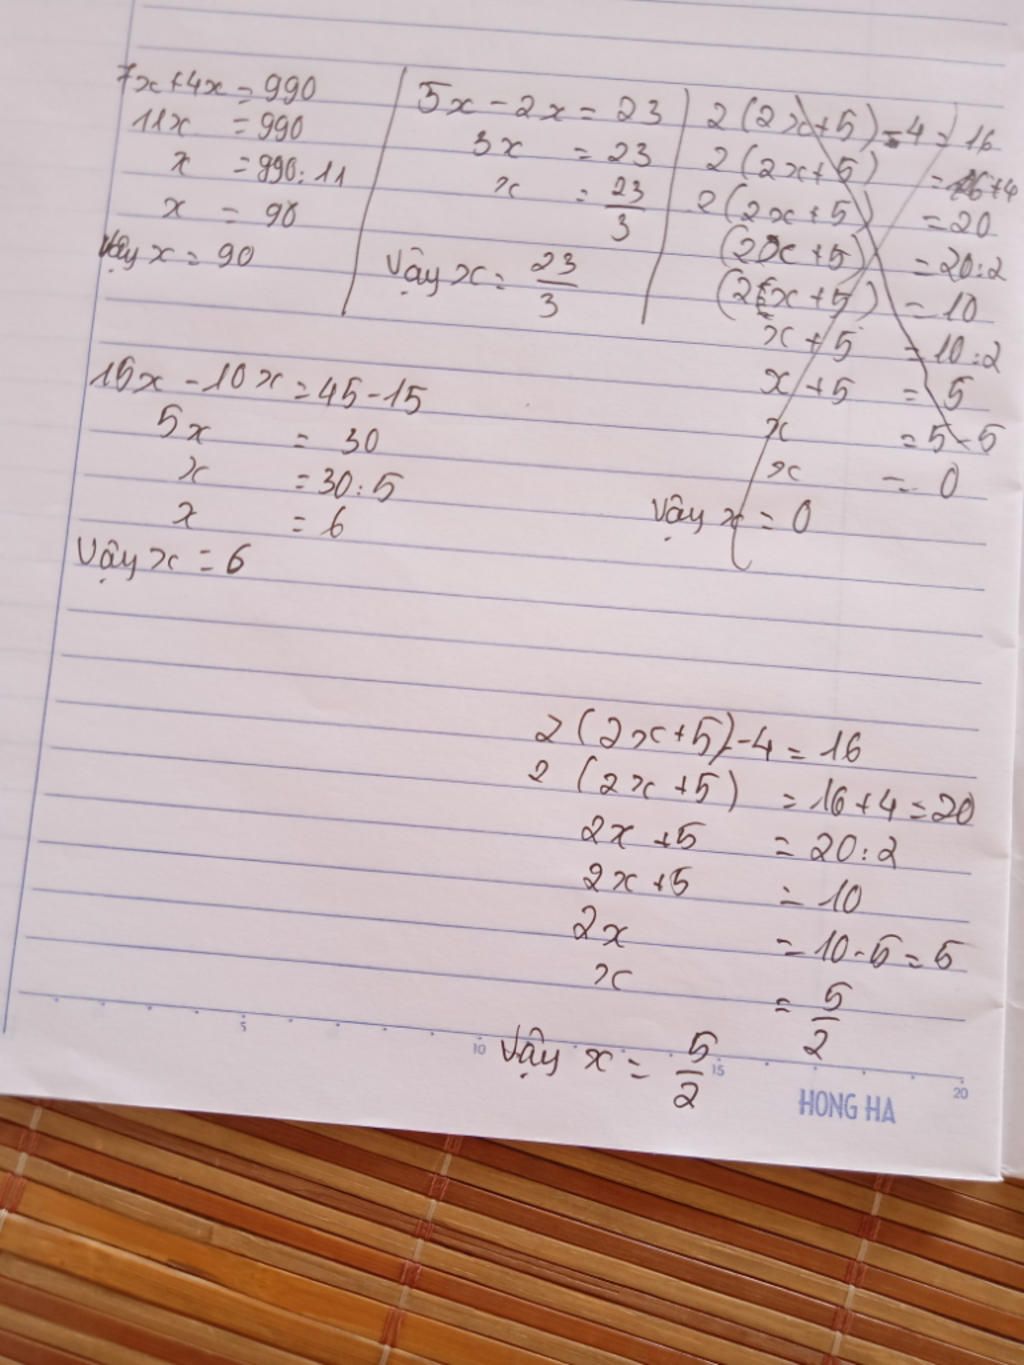 7x+4x=990
11x =990
x =990:11
x = 90
Vậy x = 90
5x - 2x = 23
3x = 23
x = 23/3
Vậy x = 23/3
2(2x+5)-4=16
2(2x+5) =16+4
2(2x+5) =20
(2x+5) =20:2
(2x+5) =10
x+5 =10:2
x+5 = 5
x =5-5
x = 0
Vậy x = 0
15x -10x =45-15
5x = 30
x =30:5
x = 6
Vậy x = 6
2(2x+5)-4=16
2(2x+5) =16+4=20
2x+5 =20:2
2x+5 =10
2x =10-5=5
x = 5/2
Vậy x = 5/2
5 10 15 20
HONG HA